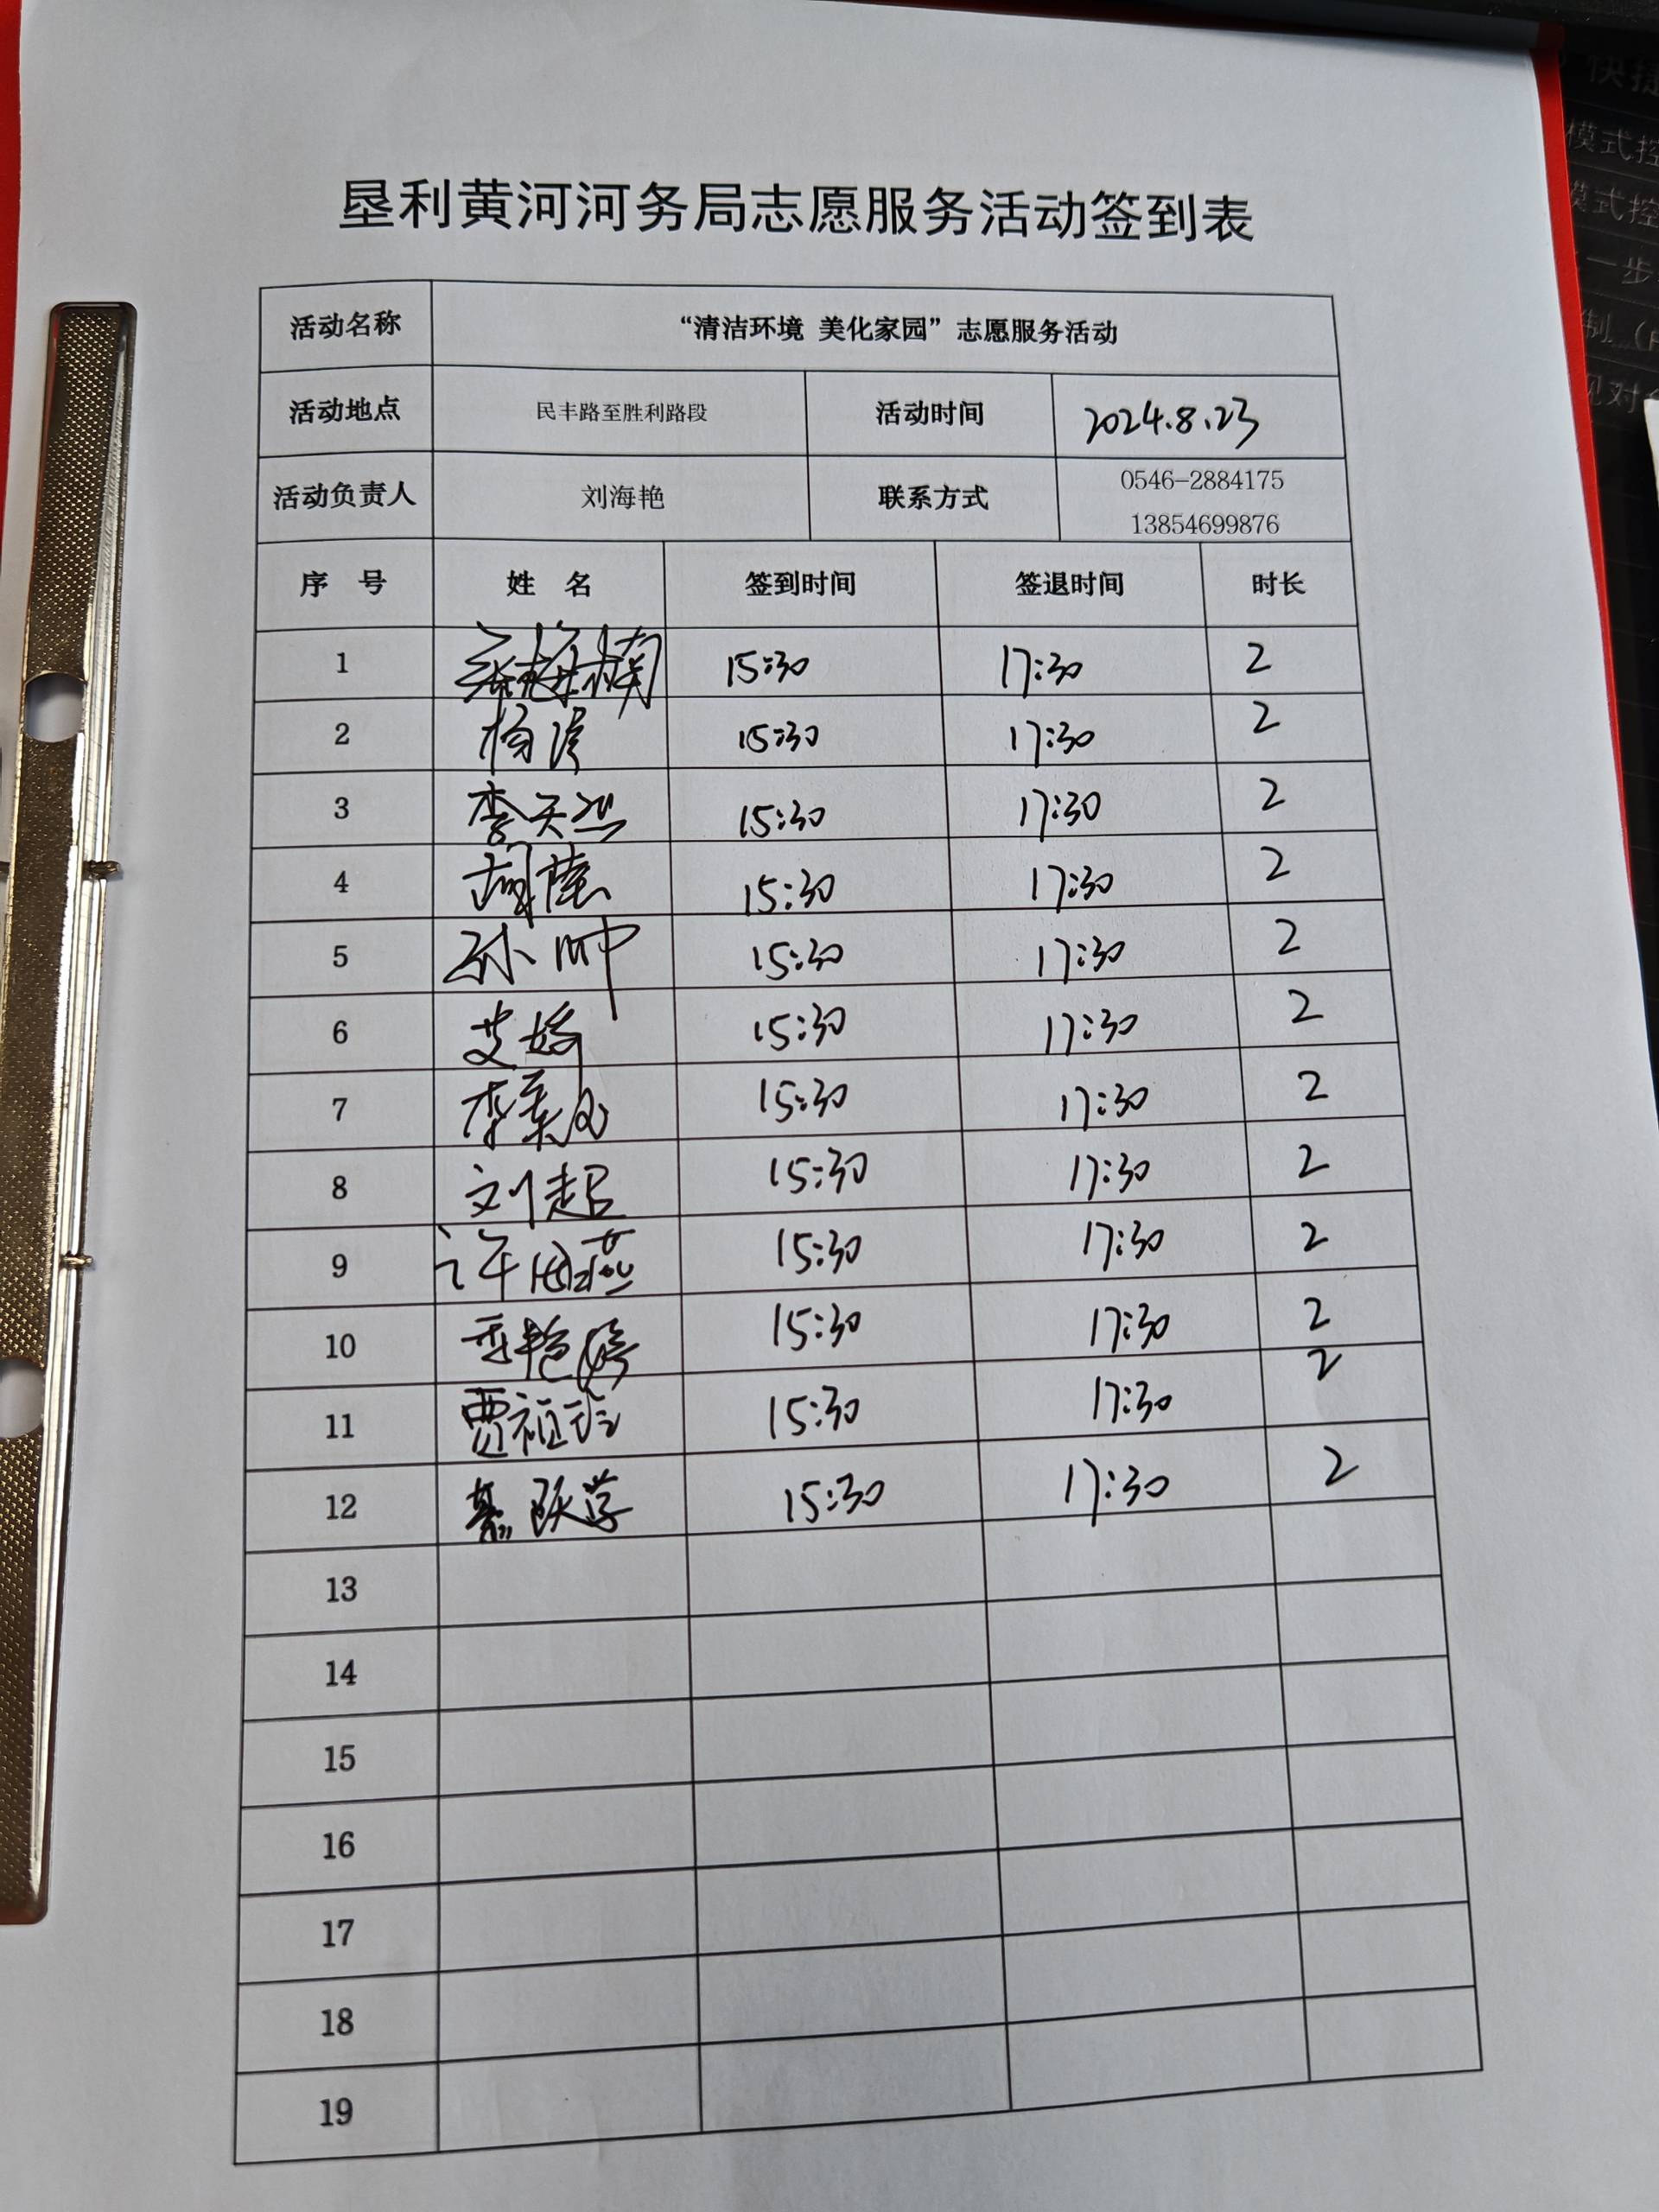 垦利黄河河务局志愿服务活动签到表
活动名称 “清洁环境 美化家园”志愿服务活动
活动地点 民丰路至胜利路段 活动时间 2024.8.23
活动负责人 刘海艳 联系方式 0546-2884175
13854699876
序 号 姓 名 签到时间 签退时间 时长
1 15:30 17:30 2
2 杨滨 15:30 17:30 2
3 李天然 15:30 17:30 2
4 15:30 17:30 2
5 孙帅 15:30 17:30 2
6 艾娇 15:30 17:30 2
7 15:30 17:30 2
8 刘超 15:30 17:30 2
9 15:30 17:30 2
10 15:30 17:30 2
11 15:30 17:30 2
12 綦跃学 15:30 17:30 2
13
14
15
16
17
18
19
快捷
模式控
模式控
一步
制
现对